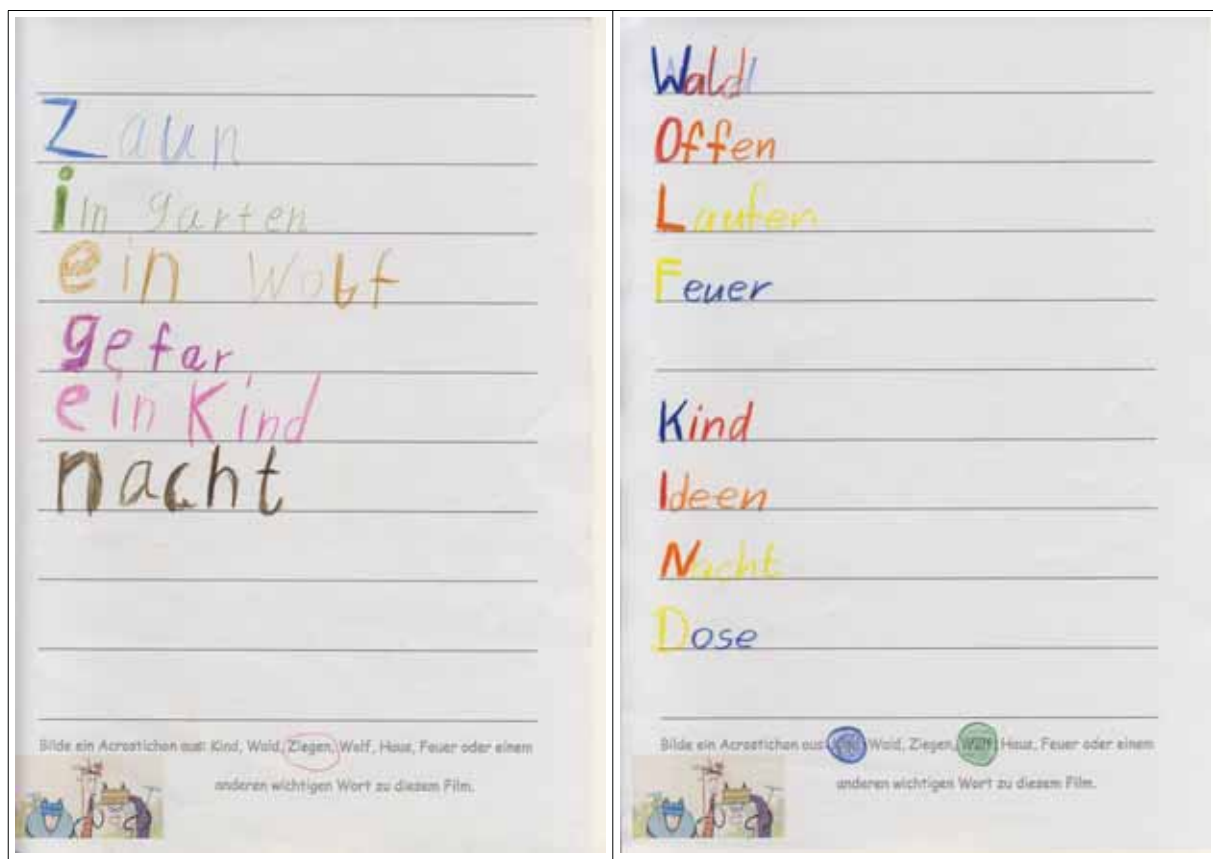 Zaun
im garten
ein Wolf
gefar
ein Kind
nacht
Bilde ein Acrostichon aus: Kind, Wald, Ziegen, Wolf, Haus, Feuer oder einem
anderen wichtigen Wort zu diesem Film.
Wald
Offen
Laufen
Feuer
Kind
Ideen
Nacht
Dose
Bilde ein Acrostichon aus: Kind, Wald, Ziegen, Wolf, Haus, Feuer oder einem
anderen wichtigen Wort zu diesem Film.